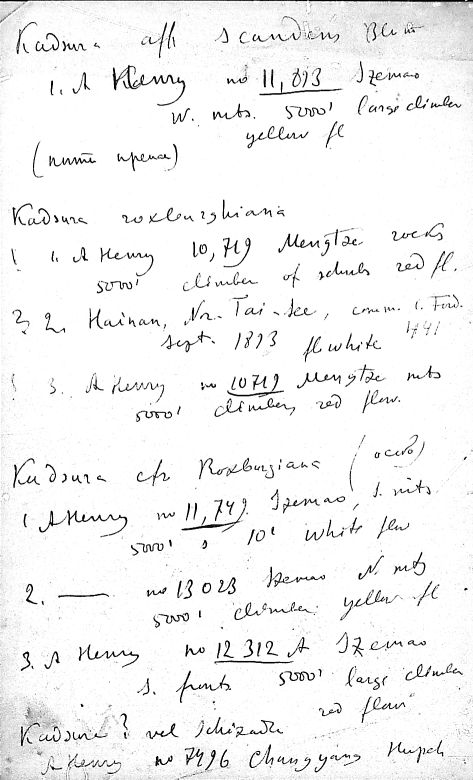 Kadsura aff scandens Blum
1. A Henry no 11,893 Szemao
W. mts. 5000' large climber
yellow fl
Kadsura roxburghiana
! 1. A Henry 10,719 Mengtze rocks
5000' climber of shrubs red fl.
? 2. Hainan, Nr. Tai-See, comm. C. Ford.
Sept. 1893 fl white 441
! 3. A Henry no 10719 Mengtze mts
5000' climber, red flow.
Kadsura cfr Roxburgiana
1 A Henry no 11,749. Szemao, S. mts.
5000' s 10' white flow
2. —— no 13023 Szemao N. mts
5000' climber yellow fl.
3. A Henry no 12312 A Szemao
S. forests 5000' large climber
red flow
Kadsura? vel Schizadr
A Henry no 7496 Changyang Hupeh